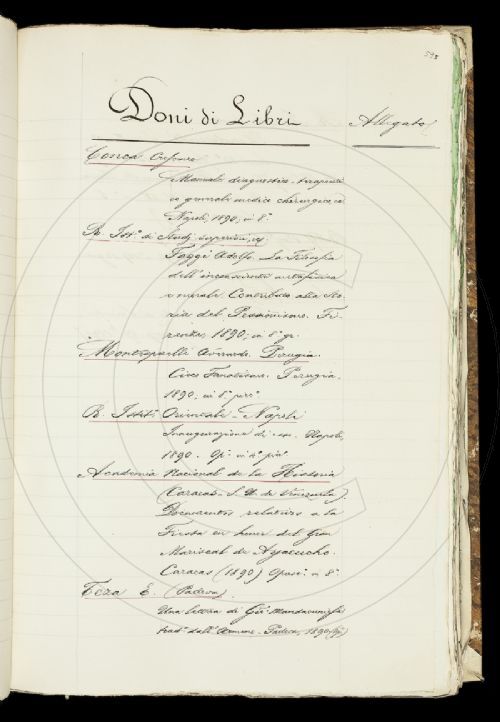 598
Doni di Libri
Allegato
Conca
Manuale diagnostico-terapeuti
co generale medico chirurgico, ec
Napoli, 1890, in 8.°
R. Ist.° di Studj superiori, ec.
Faggi Adolfo. La Filosofia
dell'incosciente metafisica
e morale. Contributo alla Sto
ria del Pessimismo. Fi
renze, 1890; in 8.° gr.
Perugia.
Cives Perugia.
1890; in 8.°
R. Istit.° Orientale - Napoli
Inaugurazione di Napoli,
1890. Op. in 4.°
Academia Nacional de la Historia
Caracas - S. U. de Venezuela.
Documentos relativos a la
Fiesta en honor del Gran
Mariscal de Ayacucho.
Caracas (1890) Opusc. in 8.°
Teza E. (Padova)
Una lettera di
trad.ª dall' Armeno. Padova, 1890